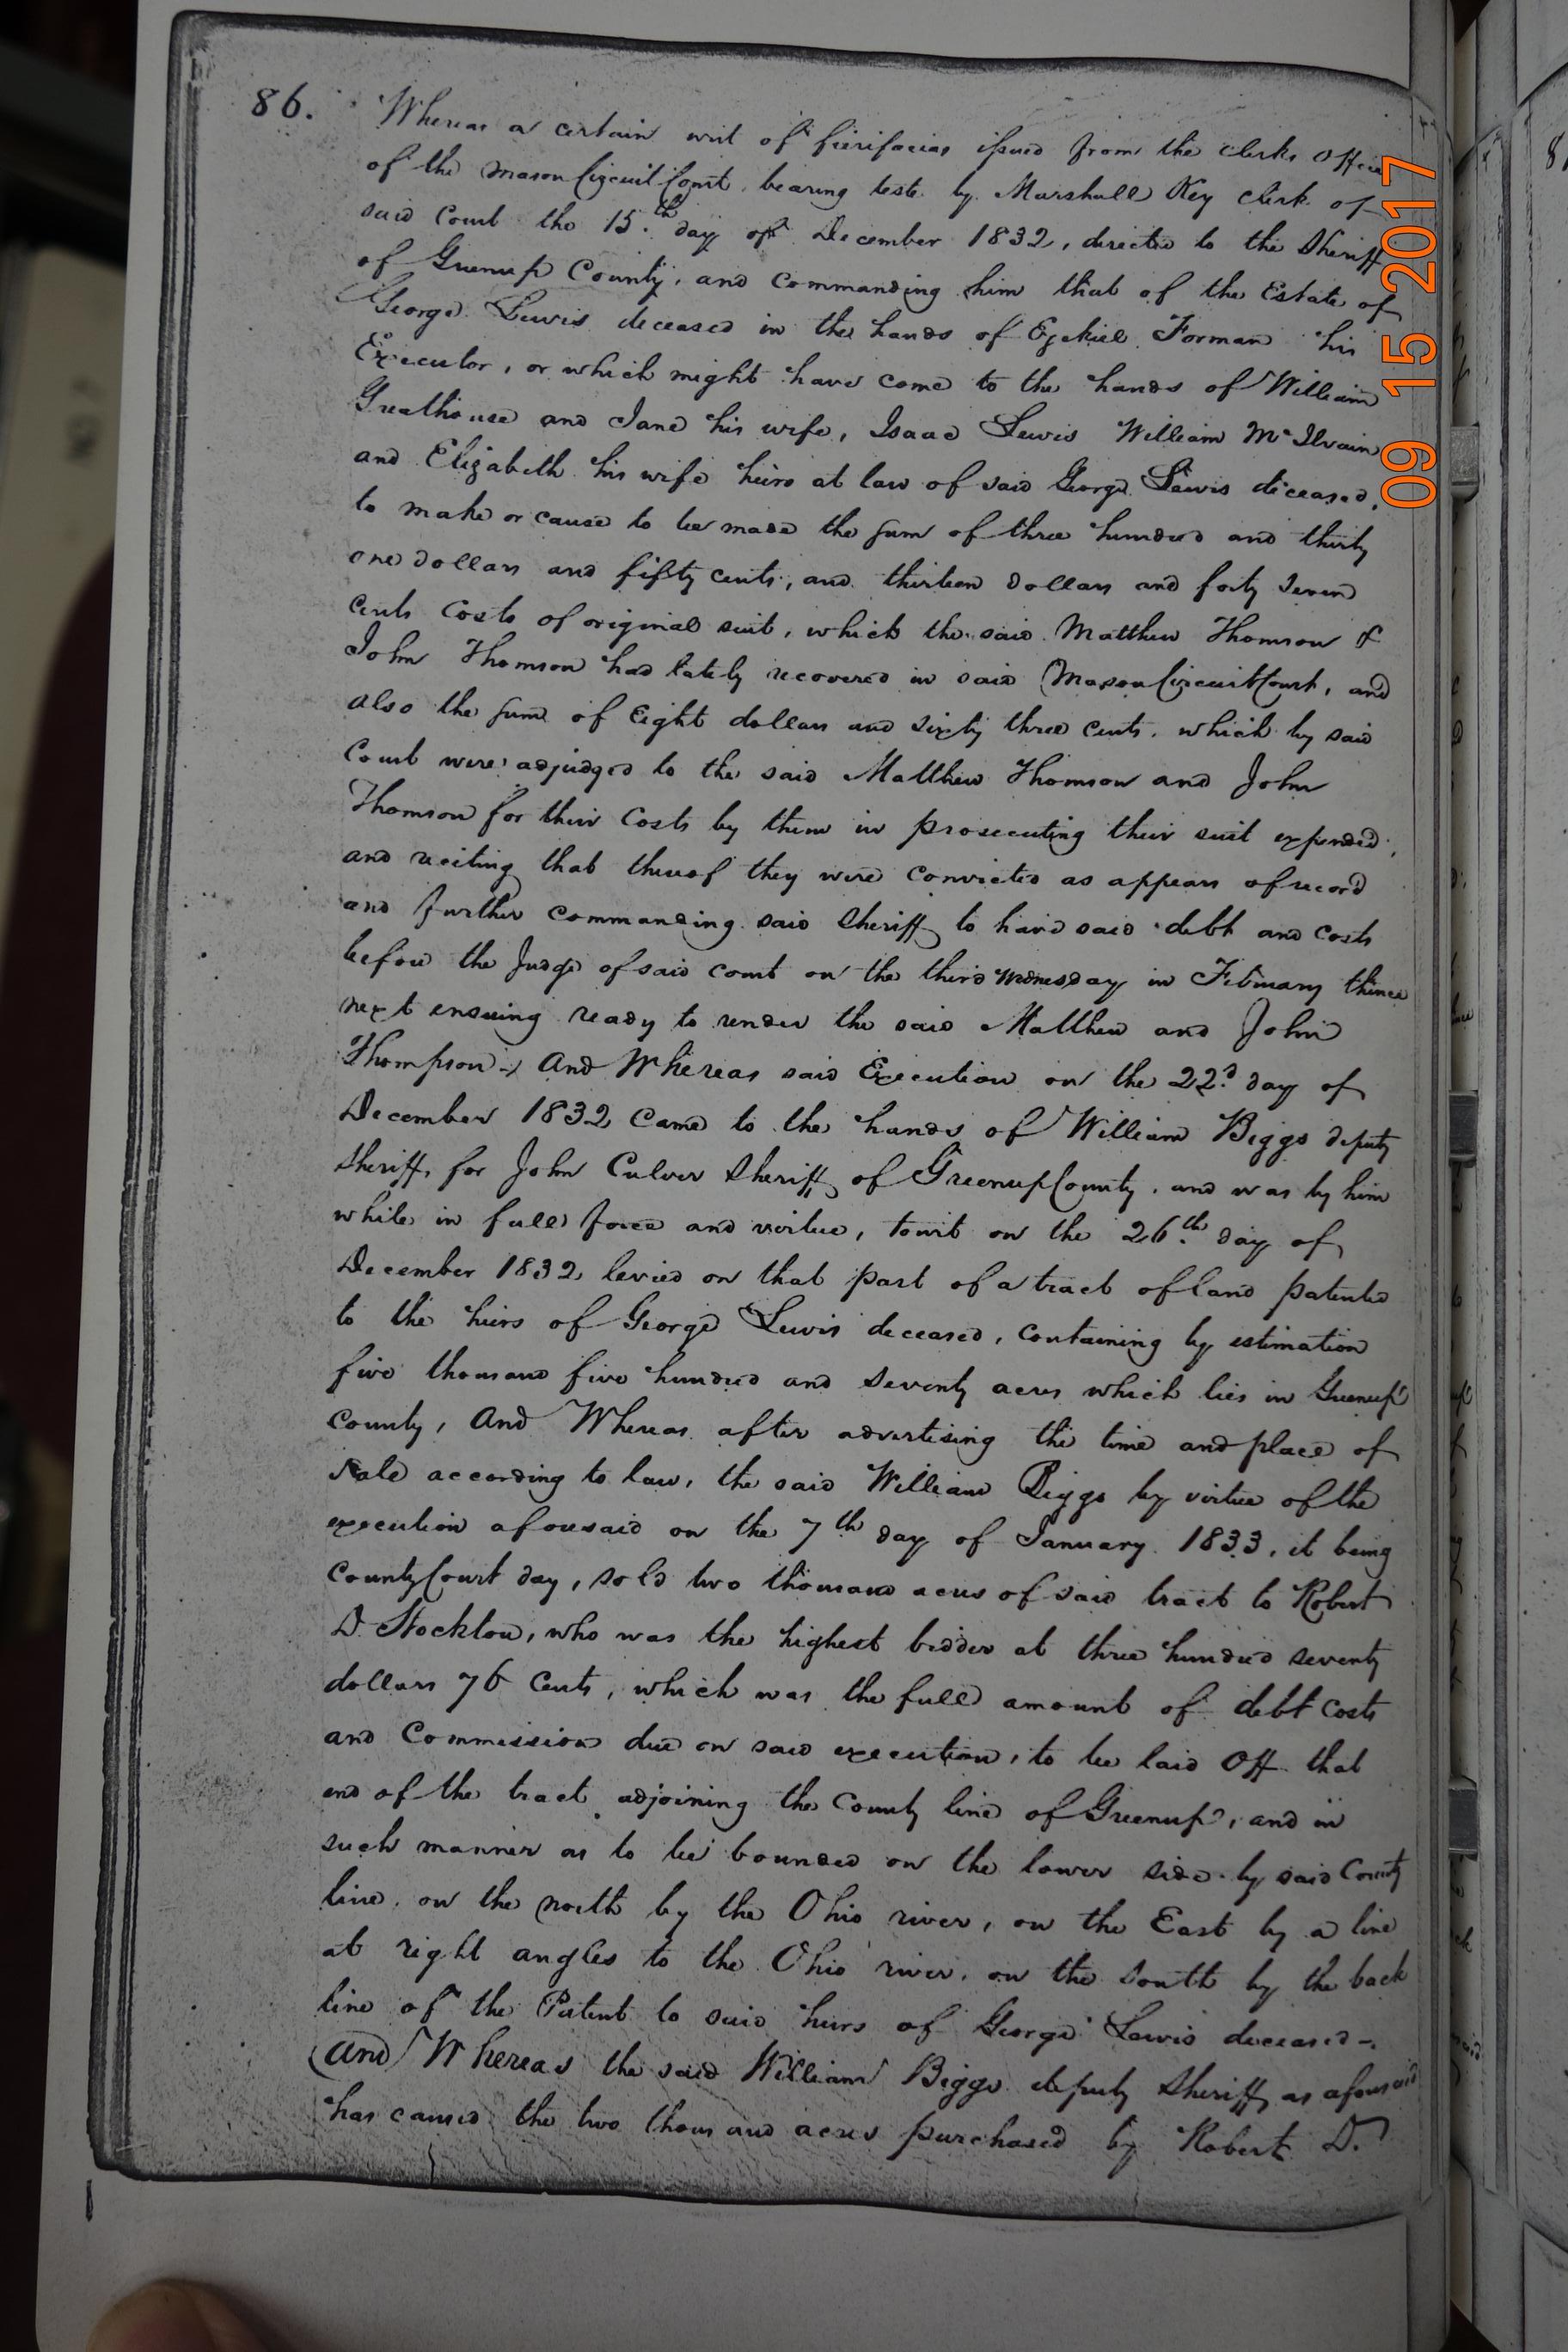 86.
Whereas a certain writ of fierifacias issued from the clerks Office
of the Mason Circuit Court, bearing teste by Marshall Key clerk of
said Court the 15.th day of December 1832, directed to the Sheriff
of Greenup County, and commanding him that of the Estate of
George Lewis deceased in the hands of Ezekiel Forman his
Executor, or which might have come to the hands of William
Greathouse and Jane his wife, Isaac Lewis William McIlvain
and Elizabeth his wife heirs at law of said George Lewis deceased,
to make or cause to be made the sum of three hundred and thirty
one dollars and fifty cents, and thirteen dollars and forty seven
cents Costs of original suit, which the said Matthew Thomson &
John Thomson had lately recovered in said Mason Circuit Court, and
also the sum of Eight dollars and sixty three cents. which by said
Court were adjudged to the said Matthew Thomson and John
Thomson for their Costs by them in prosecuting their suit expended,
and reciting that thereof they were convicted as appears of record
and further commanding said Sheriff to have said debt and costs
before the Judge of said court on the third Wednesday in February thence
next ensuing ready to render the said Matthew and John
Thompson - And Whereas said Execution on the 22.d day of
December 1832 came to the hands of William Biggs deputy
Sheriff for John Culver Sheriff of Greenup County, and was by him
while in full force and virtue, towit on the 26.th day of
December 1832 levied on that part of a tract of land patented
to the heirs of George Lewis deceased, containing by estimation
five thousand five hundred and seventy acres which lies in Greenup
County, And Whereas after advertising the time and place of
Sale according to law, the said William Biggs by virtue of the
execution aforesaid on the 7th day of January 1833, it being
County Court day, sold two thousand acres of said tract to Robert
D. Stockton, who was the highest bidder at three hundred seventy
dollars 76 Cents, which was the full amount of debt costs
and Commission due on said execution, to be laid Off that
end of the tract adjoining the County line of Greenup, and in
such manner as to be bounded on the lower side by said County
line, on the north by the Ohio river, on the East by a line
at right angles to the Ohio river, on the South by the back
line of the Patent to said heirs of George Lewis deceased -
And Whereas the said William Biggs deputy Sheriff as aforesaid
has caused the two thousand acres purchased by Robert D.
09 15 2017